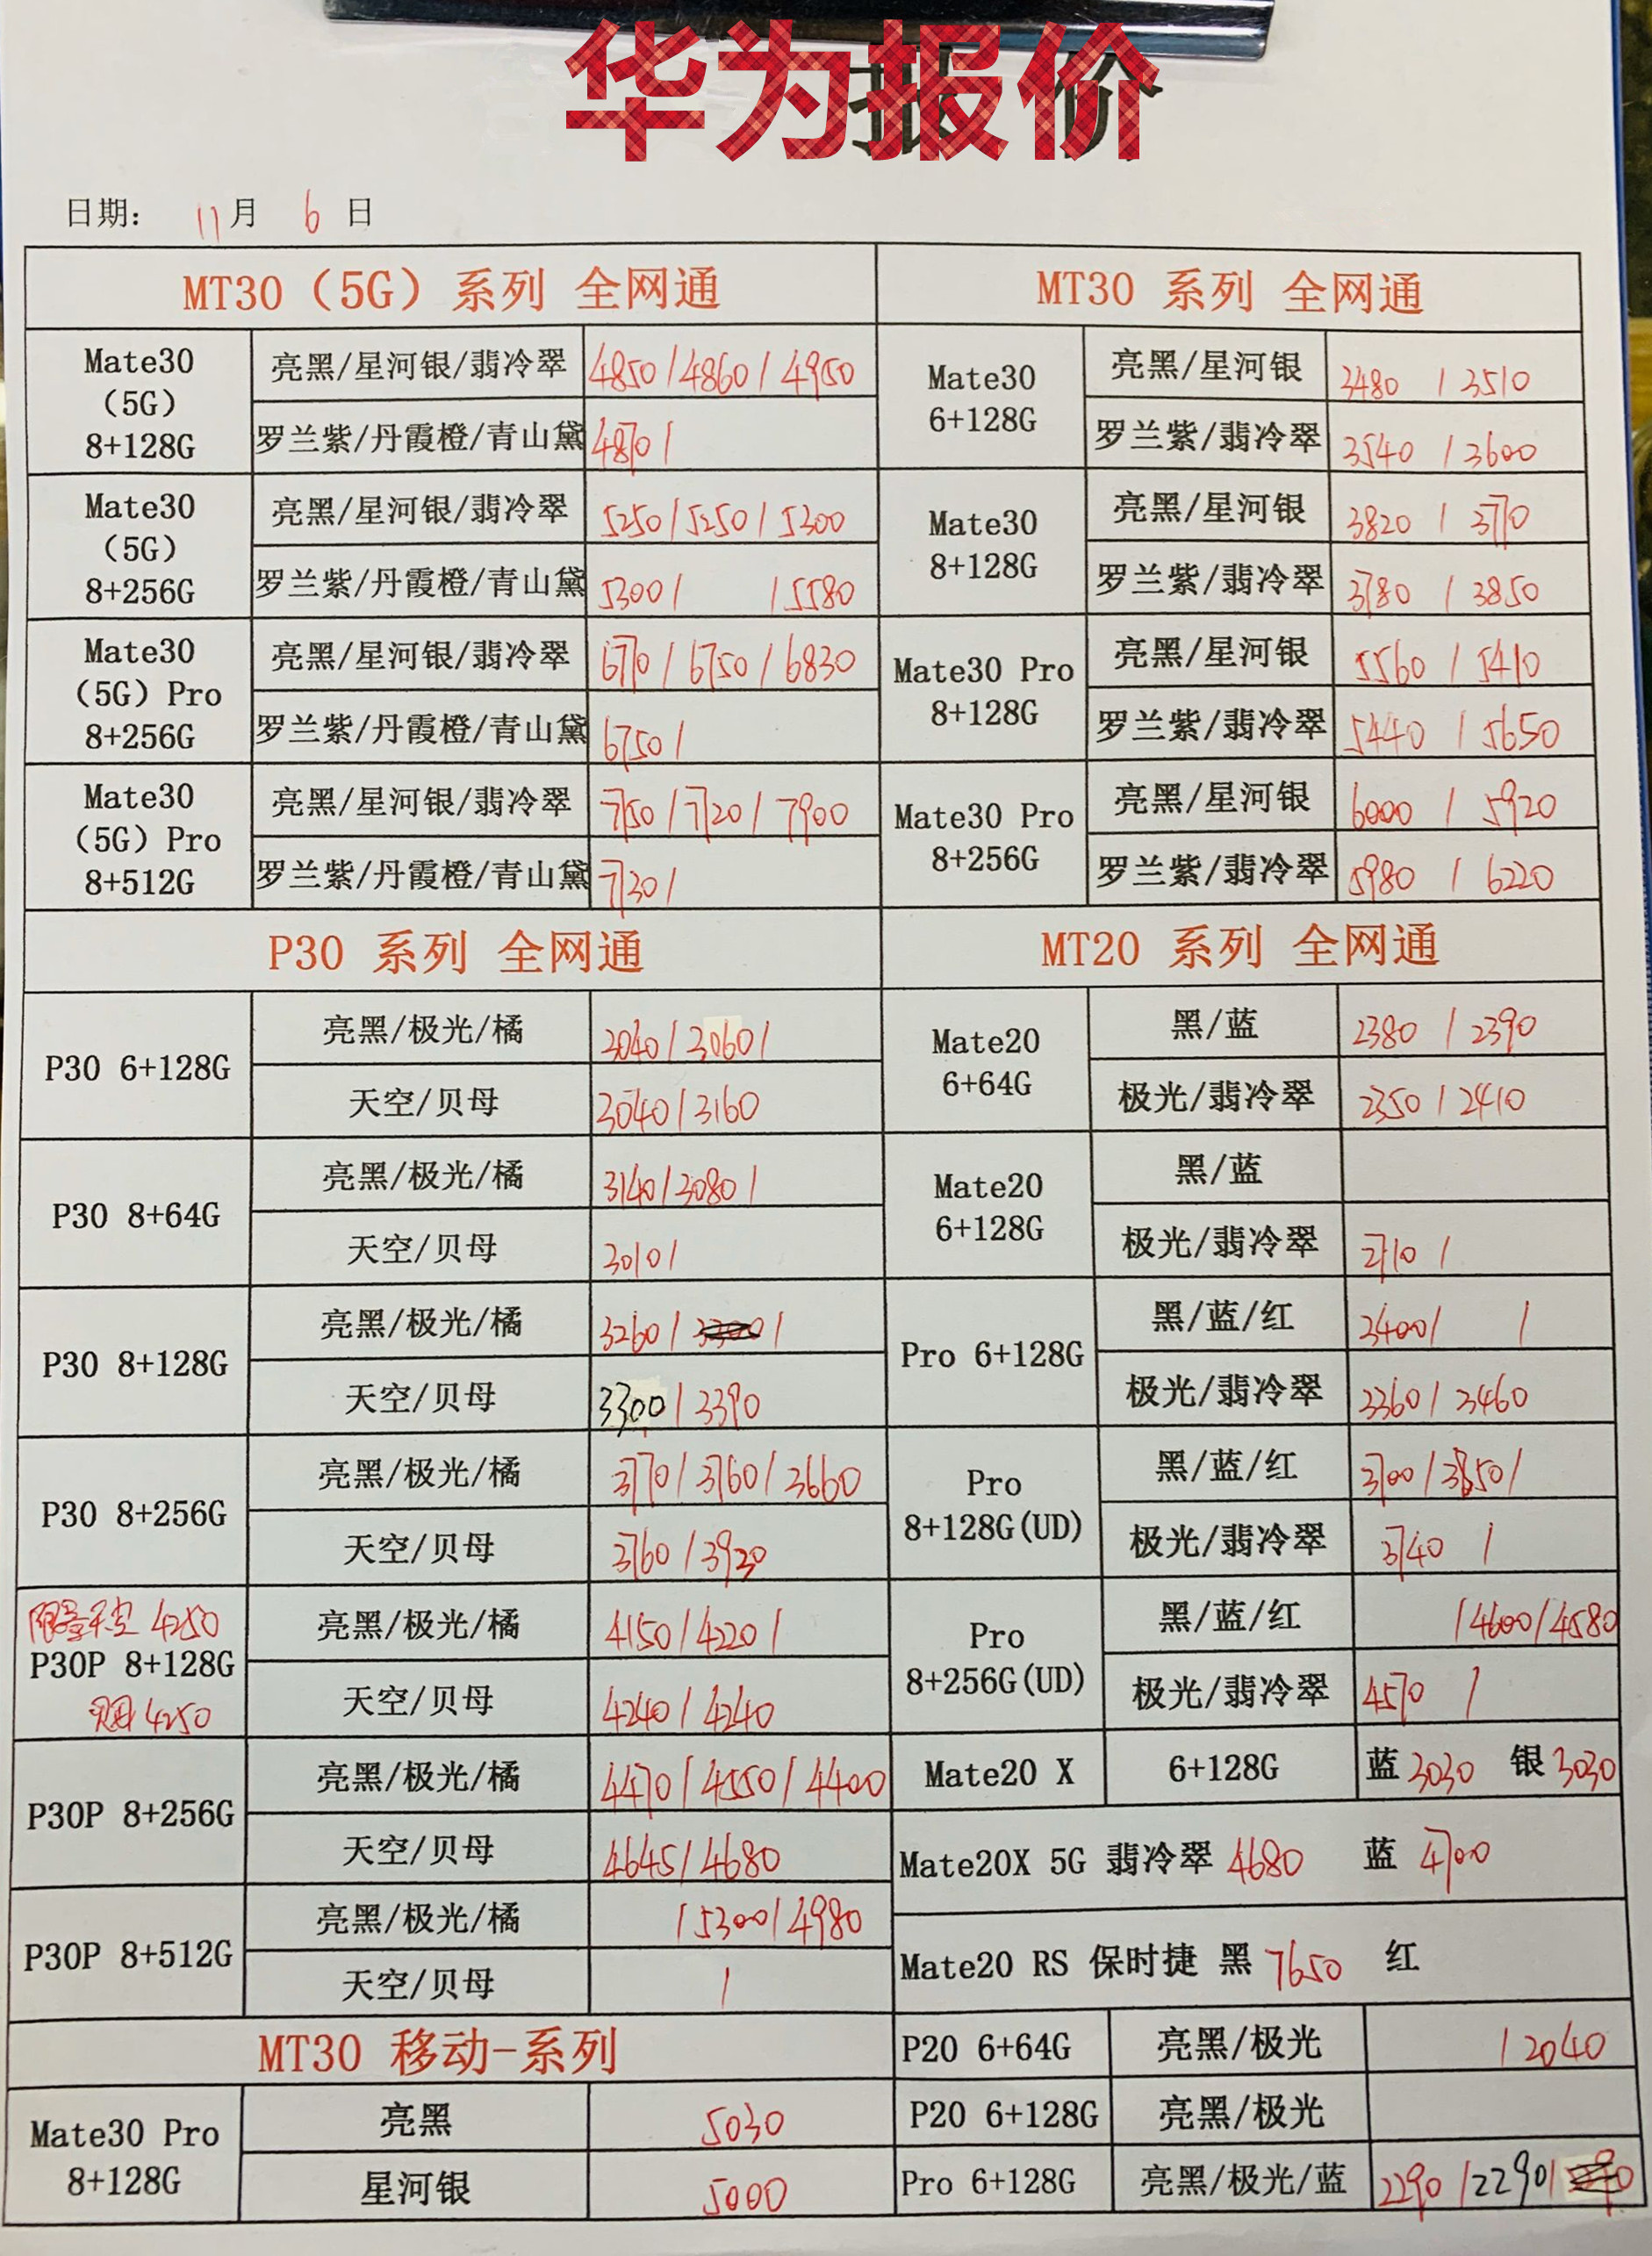 华为报价
日期： 11月 6 日
MT30（5G）系列 全网通
Mate30
（5G）
8+128G
亮黑/星河银/翡冷翠 4850/4860/4950
罗兰紫/丹霞橙/青山黛 4870/
Mate30
（5G）
8+256G
亮黑/星河银/翡冷翠 5250/5250/5300
罗兰紫/丹霞橙/青山黛 5300/ /5580
Mate30
（5G）Pro
8+256G
亮黑/星河银/翡冷翠 6770/6750/6830
罗兰紫/丹霞橙/青山黛 6750/
Mate30
（5G）Pro
8+512G
亮黑/星河银/翡冷翠 7750/7720/7900
罗兰紫/丹霞橙/青山黛 7730/
MT30 系列 全网通
Mate30
6+128G
亮黑/星河银 3480 / 3510
罗兰紫/翡冷翠 3540 / 3600
Mate30
8+128G
亮黑/星河银 3820 / 3770
罗兰紫/翡冷翠 3780 / 3850
Mate30 Pro
8+128G
亮黑/星河银 5560 / 5410
罗兰紫/翡冷翠 5440 / 5650
Mate30 Pro
8+256G
亮黑/星河银 6000 / 5920
罗兰紫/翡冷翠 5980 / 6220
P30 系列 全网通
P30 6+128G
亮黑/极光/橘 3040/3060/
天空/贝母 3040/3160
P30 8+64G
亮黑/极光/橘 3140/3080/
天空/贝母 3010/
P30 8+128G
亮黑/极光/橘 3260/ /
天空/贝母 3300/3390
P30 8+256G
亮黑/极光/橘 3770/3760/3660
天空/贝母 3760/3920
天空 4250
P30P 8+128G
贝母 4250
亮黑/极光/橘 4150/4220/
天空/贝母 4240/4240
P30P 8+256G
亮黑/极光/橘 4470/4550/4400
天空/贝母 4645/4680
P30P 8+512G
亮黑/极光/橘 /5300/4980
天空/贝母 /
MT30 移动-系列
Mate30 Pro
8+128G
亮黑 5030
星河银 5000
MT20 系列 全网通
Mate20
6+64G
黑/蓝 2380 / 2390
极光/翡冷翠 2350/2410
Mate20
6+128G
黑/蓝
极光/翡冷翠 2710 /
Pro 6+128G
黑/蓝/红 3400/ /
极光/翡冷翠 3360/3460
Pro
8+128G(UD)
黑/蓝/红 3700/3850/
极光/翡冷翠 3740 /
Pro
8+256G(UD)
黑/蓝/红 /4600/4580
极光/翡冷翠 4570 /
Mate20 X 6+128G 蓝 3030 银 3030
Mate20X 5G 翡冷翠 4680 蓝 4700
Mate20 RS 保时捷 黑 7650 红
P20 6+64G 亮黑/极光 / 2040
P20 6+128G 亮黑/极光
Pro 6+128G 亮黑/极光/蓝 2290/2290/